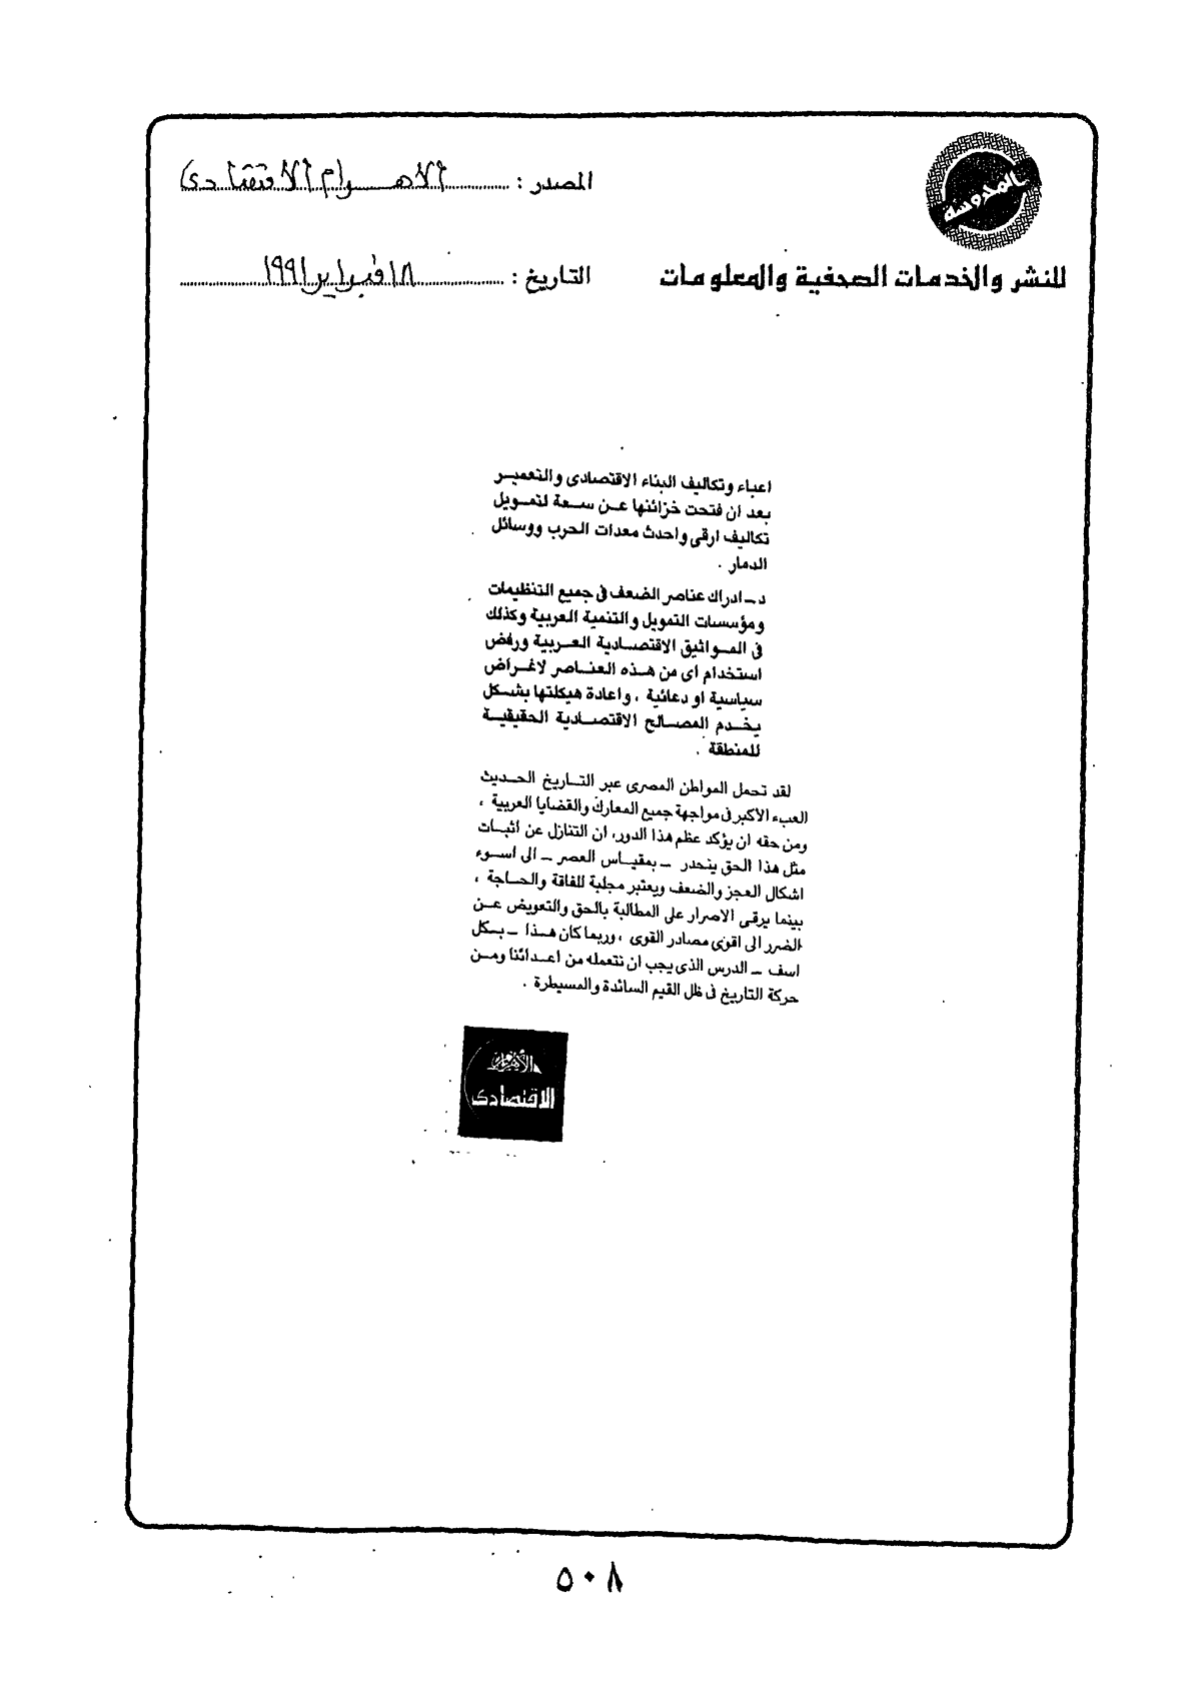 المحروسة
للنشر والخدمات الصحفية والمعلومات
المصدر : الاهرام الاقتصادى
التاريخ : ١٨ فبراير ١٩٩١
اعباء وتكاليف البناء الاقتصادى والتعمير
بعد ان فتحت خزائنها عن سعة لتمويل
تكاليف ارقى واحدث معدات الحرب ووسائل
الدمار .
د ـ ادراك عناصر الضعف فى جميع التنظيمات
ومؤسسات التمويل والتنمية العربية وكذلك
فى المواثيق الاقتصادية العربية ورفض
استخدام اى من هذه العناصر لاغراض
سياسية او دعائية ، واعادة هيكلتها بشكل
يخدم المصالح الاقتصادية الحقيقية
للمنطقة .
لقد تحمل المواطن المصرى عبر التاريخ الحديث
العبء الأكبر فى مواجهة جميع المعارك والقضايا العربية ،
ومن حقه ان يؤكد عظم هذا الدور، ان التنازل عن اثبات
مثل هذا الحق ينحدر ـ بمقياس العصر ـ الى اسوء
اشكال العجز والضعف ويعتبر مجلبة للفاقة والحاجة ،
بينما يرقى الاصرار على المطالبة بالحق والتعويض عن
الضرر الى اقوى مصادر القوى ، وربما كان هذا ـ بكل
اسف ـ الدرس الذى يجب ان نتعمله من اعدائنا ومن
حركة التاريخ فى ظل القيم السائدة والمسيطرة .
الأهرام
الاقتصادى
٥٠٨